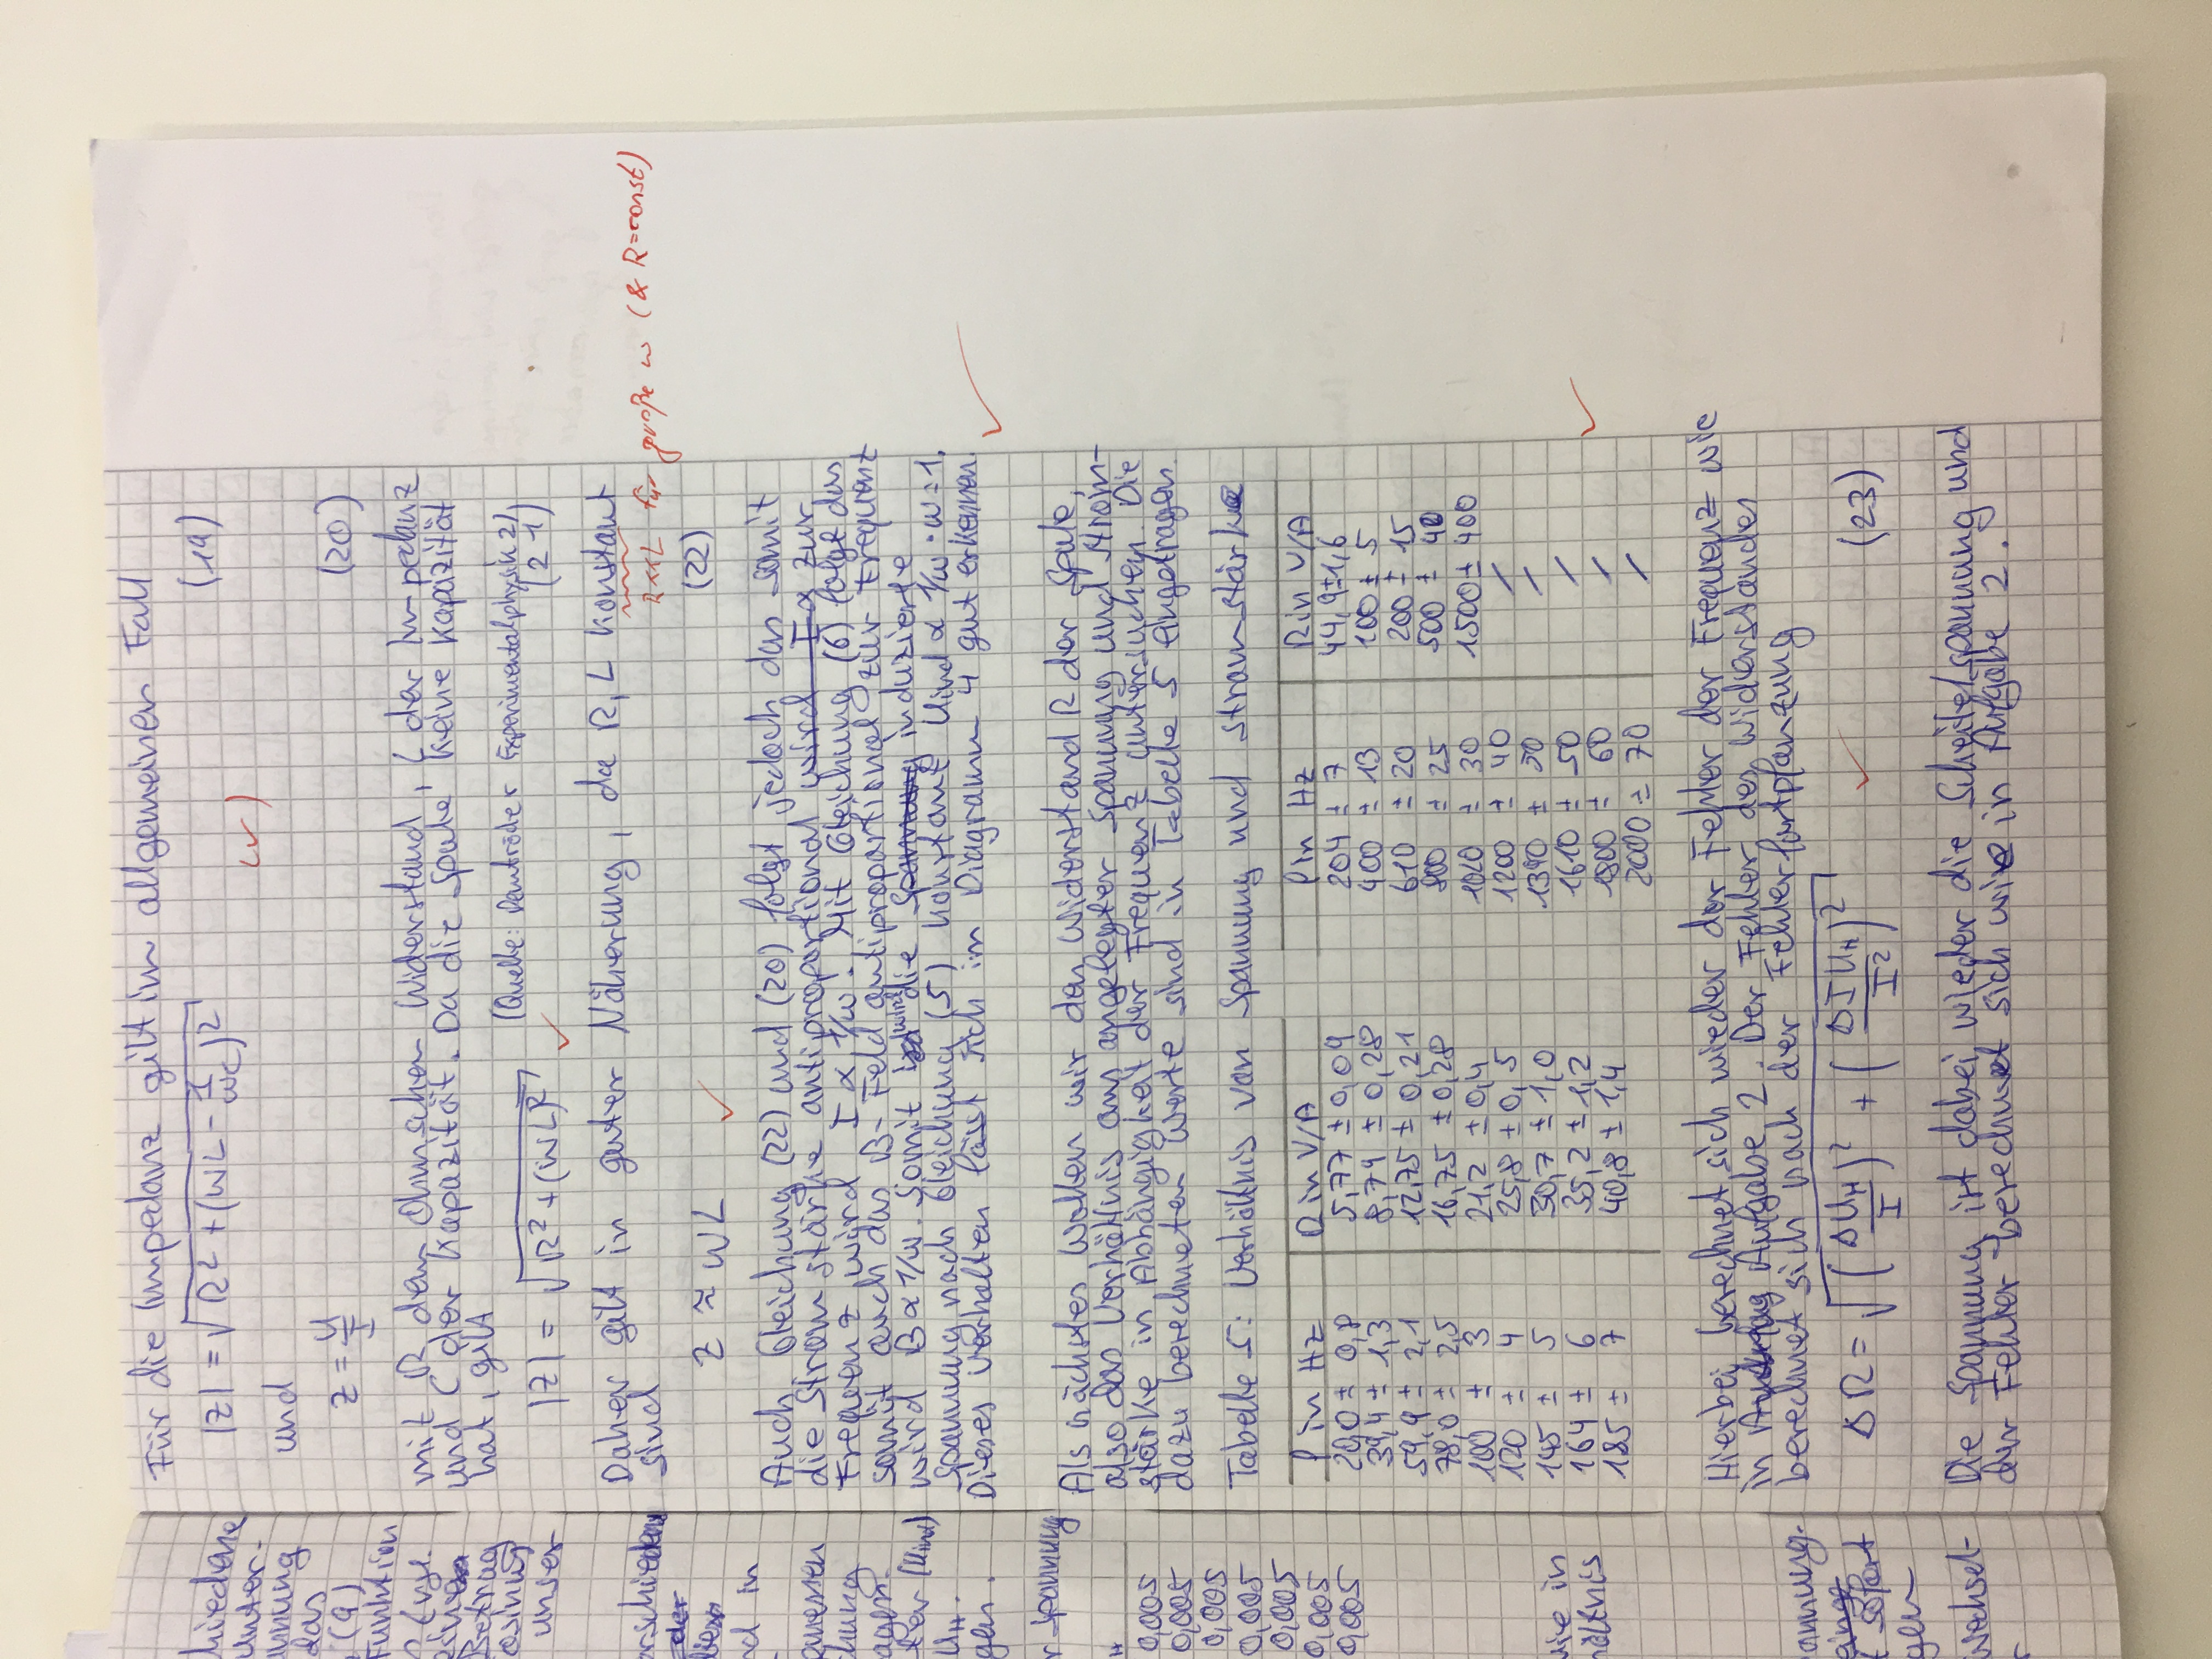 hiedene
unter-
annung
das
(9)
Funktion
Betrag
unser
nd in
chung
agen.
ter (Uind)
UH.
gen.
r Spannung
H
0,005
0,005
0,005
0,005
0,005
0,005
0,005
wie in
hältnis
annung.
sofort
gen
wechsel-
r
Für die Impedanz gilt im allgemeinen Fall
|Z| = √(R² + (ωL - 1/ωC)²) (19)
(✓)
und
Z = U/I (20)
mit R dem Ohmschen Widerstand, L der Impedanz
und C der Kapazität. Da die Spule keine Kapazität
hat, gilt
(Quelle: Demtröder Experimentalphysik 2)
|Z| = √(R² + (ωL)²) ✓ (21)
Daher gilt in guter Näherung, da R, L konstant
sind
R<<L für große ω (& R=const)
Z ≈ ωL ✓ (22)
Auch Gleichung (22) und (20) folgt jedoch das somit
die Stromstärke antiproportional wird I ∝ zur
Frequenz wird I ∝ 1/ω. Mit Gleichung (6) folgt das
somit auch das B-Feld antiproportional zur Frequenz
wird B ∝ 1/ω. Somit wird die Spannung induzierte
Spannung nach Gleichung (5) konstant Uind ∝ 1/ω · ω = 1.
Dieses Verhalten lässt sich im Diagramm 4 gut erkennen. ✓
Als nächstes wollen wir den Widerstand R der Spule,
also das Verhältnis aus angelegter Spannung und Strom-
stärke in Abhängigkeit der Frequenz untersuchen. Die
dazu berechneten Werte sind in Tabelle 5 eingetragen.
Tabelle 5: Verhältnis von Spannung und Stromstärke
f in Hz R in V/A f in Hz R in V/A
20,0 ± 0,8 5,77 ± 0,09 204 ± 7 44,9 ± 1,6
39,4 ± 1,3 8,79 ± 0,28 400 ± 13 100 ± 5
59,9 ± 2,1 12,75 ± 0,21 610 ± 20 200 ± 15
78,0 ± 2,5 16,75 ± 0,28 800 ± 25 500 ± 40
100 ± 3 21,2 ± 0,4 1010 ± 30 1500 ± 400
120 ± 4 25,8 ± 0,5 1200 ± 40 /
145 ± 5 30,7 ± 1,0 1390 ± 50 /
164 ± 6 35,2 ± 1,2 1610 ± 50 /
185 ± 7 40,8 ± 1,4 1800 ± 60 /
2000 ± 70 /
✓
Hierbei berechnet sich wieder der Fehler der Frequenz wie
in Aufgabe 2. Der Fehler des Widerstandes
berechnet sich nach der Fehlerfortpflanzung
ΔR = √((ΔUH/I)² + (ΔI UH/I²)²) ✓ (23)
Die Spannung ist dabei wieder die Scheitelspannung und
der Fehler berechnet sich wie in Aufgabe 2.